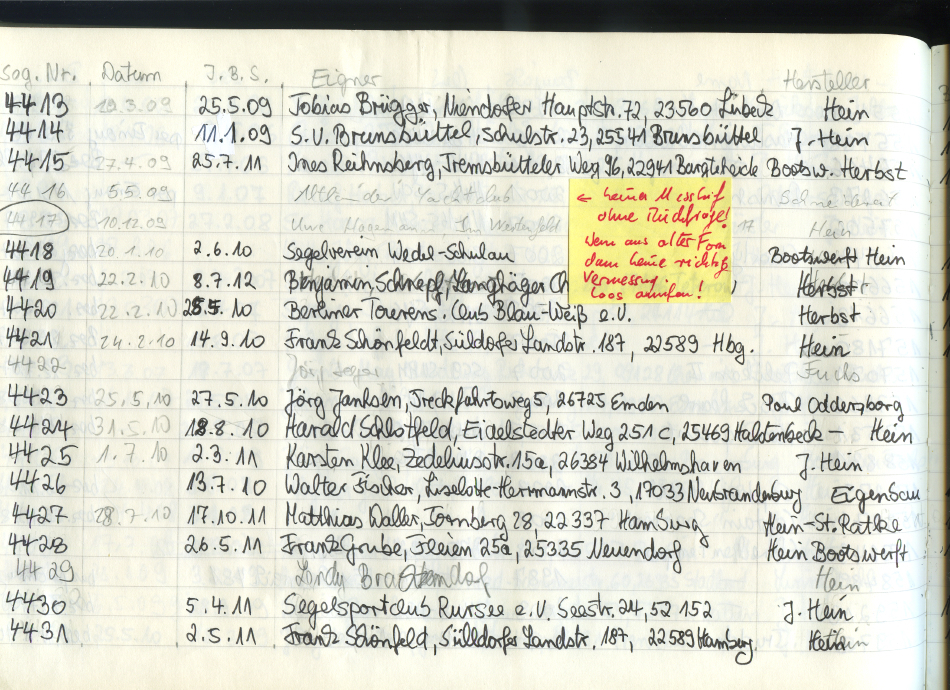 Seg. Nr. Datum J.B.S. Eigner Hersteller
4413 19.3.09 25.5.09 Tobias Brügger, Niendorfer Hauptstr. 72, 23560 Lübeck Hein
4414 11.1.09 S.V. Brunsbüttel, Schulstr. 23, 25541 Brunsbüttel J. Hein
4415 27.4.09 25.7.11 Ines Reihnsberg, Tremsbütteler Weg 96, 22941 Bargteheide Bootsw. Herbst
4416 5.5.09 Yachtclub
4417 10.12.09 Uwe 17 Hein
4418 20.1.10 2.6.10 Segelverein Wedel-Schulau Bootswerft Hein
4419 22.2.10 8.7.12 Benjamin Herbst
4420 22.2.10 10 Berliner Tourens. Club Blau-Weiß e.V. Herbst
4421 24.2.10 14.9.10 Frank Schönfeldt, Süldorfer Landstr. 187, 22589 Hbg. Hein
4422 Fuchs
4423 25.5.10 27.5.10 Jörg Janhsen, Treckfahrtsweg 5, 26725 Emden Poul Oddersborg
4424 31.5.10 18.8.10 Harald Schlotfeld, Eidelstedter Weg 251 c, 25469 Halstenbeck – Hein
4425 1.7.10 2.3.11 Karsten Klee, Zedeliusstr. 15a, 26384 Wilhelmshaven J. Hein
4426 13.7.10 Walter Fischer, Liselotte-Herrmannstr. 3, 17033 Neubrandenburg Eigenbau
4427 28.7.10 17.10.11 Matthias Waller, Tornberg 28, 22337 Hamburg Hein-St. Rathje
4428 26.5.11 Frank Grube, Fleien 25a, 25335 Neuendorf Hein Bootswerft
4429 Hein
4430 5.4.11 Segelsportclub Rursee e.V. Seestr. 24, 52152 J. Hein
4431 2.5.11 Frank Schönfeld, Sülldorfer Landstr. 187, 22589 Hamburg Hein
← keinen Messbrief
ohne Rückfrage!
Wenn aus alter Form
dann keine richtige
Vermessung
Coos anrufen!